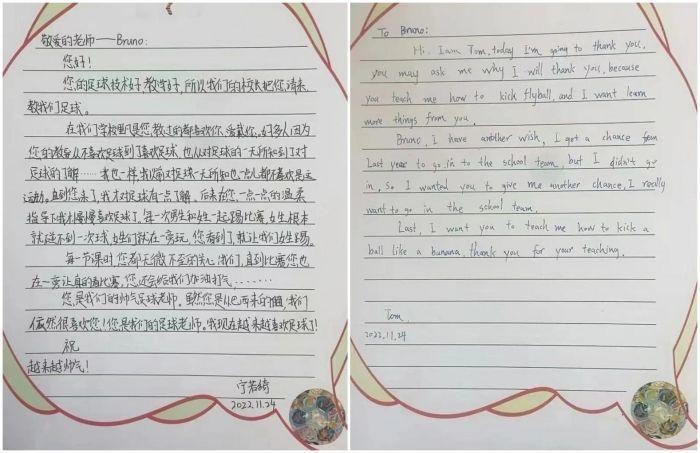 敬爱的老师——Bruno:
您好!
您的足球技术好,教学好,所以我们的校长把您请来,
教我们足球。
在我们学校里只要是您教过的都喜欢你、爱戴你,好多人因为
您的教学从不喜欢足球到了喜欢足球,也从对足球的一无所知到了对
足球的了解……我也一样,我以前对足球一无所知也一点儿都不喜欢运
动。直到您来了,我才对足球有一点了解。后来在您一点一点的温柔
指导下我才慢慢喜欢足球了,每一次男生和女生一起踢比赛,女生根本
就碰不到一次球,女生们就在一旁玩,您看到了,就让我们女生踢。
每一节课时,您都无微不至的关心我们,直到比赛您也
在一旁认真的看比赛,您还会给我们加油打气……
您是我们的帅气足球老师。虽然您是从巴西来的,但我们
依然很喜欢您!您是我们的足球老师。我现在越来越喜欢足球了!
祝
越来越帅气!
宁若
2022.11.24
To Bruno:
Hi. I am Tom, today I'm going to thank you,
you may ask me why I will thank you, because
you teach me how to kick flyball, and I want learn
more things from you.
Bruno, I have another wish, I got a chance from
Last year to go in to the school team, but I didn't go
in, so I wanted you to give me another chance, I really
want to go in the school team.
Last, I want you to teach me how to kick a
ball like a bunana, thank you for your teaching.
Tom
2022.11.24